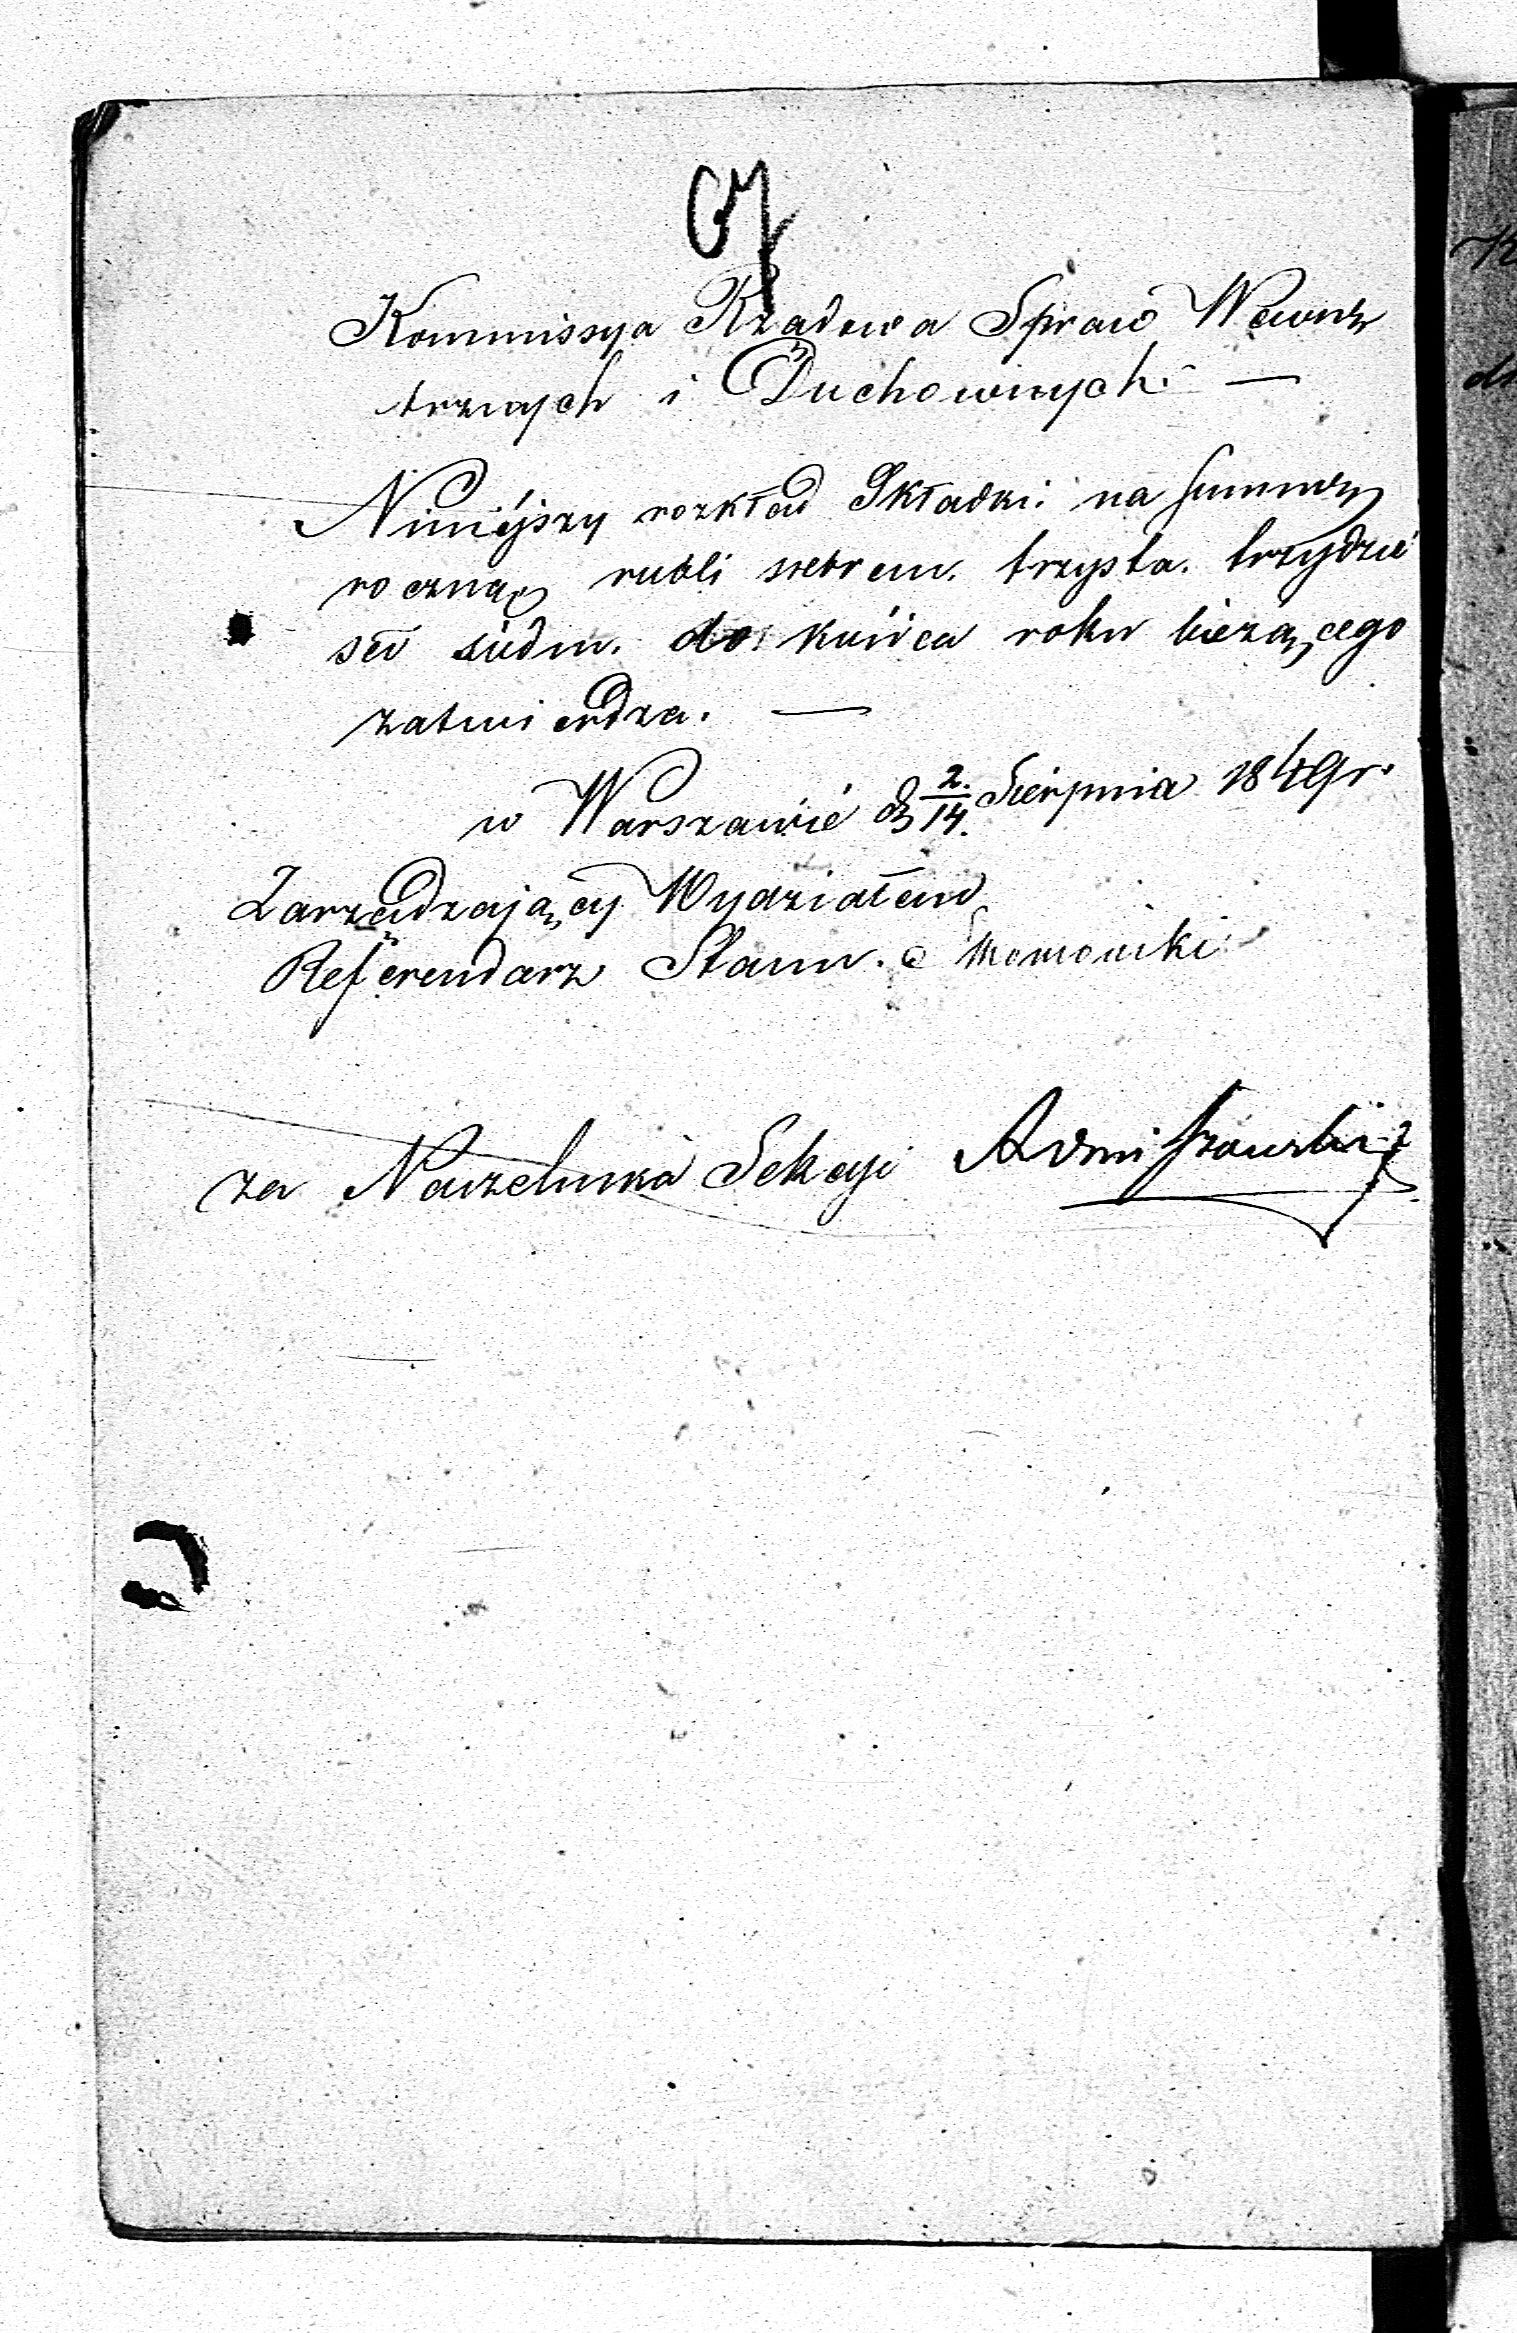 Kommissya Rządowa Spraw Wewnę
trznych i Duchownych. —
Niniéjszy rozkład Składki na summę
roczną rubli srebrem. trzysta. trzydzie
sci siedm. do końca roku bieżącego
zatwierdza. —
w Warszawie d 2./14. Sierpnia 1849 r.
Zarządzający Wydziałem
Referendarz Stanu.
za Naczelnika Sekcyi